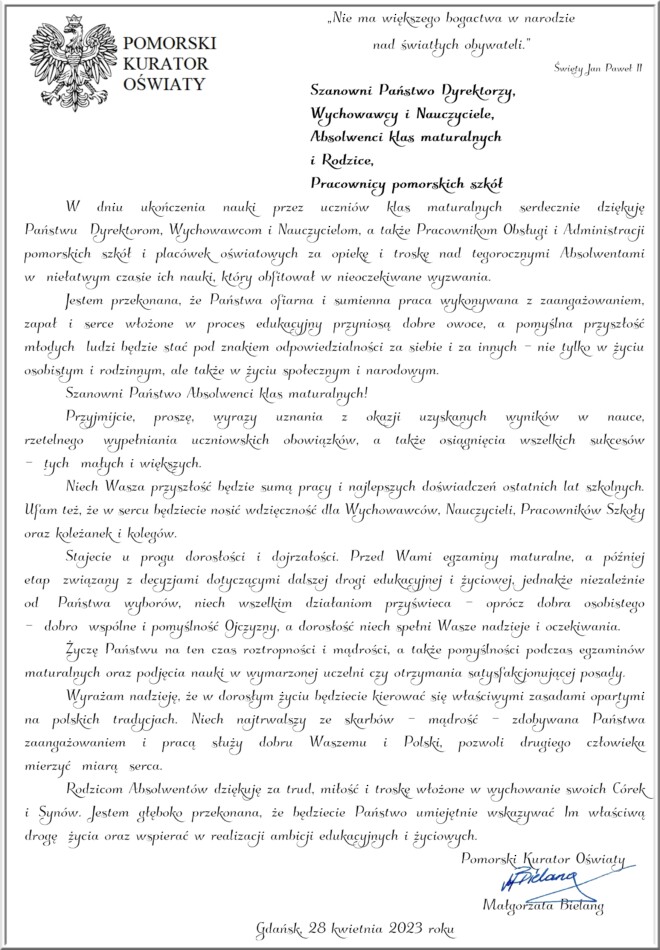 „Nie ma większego bogactwa w narodzie
nad światłych obywateli.”
Święty Jan Paweł II
POMORSKI
KURATOR
OŚWIATY
Szanowni Państwo Dyrektorzy,
Wychowawcy i Nauczyciele,
Absolwenci klas maturalnych
i Rodzice,
Pracownicy pomorskich szkół
W dniu ukończenia nauki przez uczniów klas maturalnych serdecznie dziękuję
Państwu Dyrektorom, Wychowawcom i Nauczycielom, a także Pracownikom Obsługi i Administracji
pomorskich szkół i placówek oświatowych za opiekę i troskę nad tegorocznymi Absolwentami
w niełatwym czasie ich nauki, który obfitował w nieoczekiwane wyzwania.
Jestem przekonana, że Państwa ofiarna i sumienna praca wykonywana z zaangażowaniem,
zapał i serce włożone w proces edukacyjny przyniosą dobre owoce, a pomyślna przyszłość
młodych ludzi będzie stać pod znakiem odpowiedzialności za siebie i za innych – nie tylko w życiu
osobistym i rodzinnym, ale także w życiu społecznym i narodowym.
Szanowni Państwo Absolwenci klas maturalnych!
Przyjmijcie, proszę, wyrazy uznania z okazji uzyskanych wyników w nauce,
rzetelnego wypełniania uczniowskich obowiązków, a także osiągnięcia wszelkich sukcesów
– tych małych i większych.
Niech Wasza przyszłość będzie sumą pracy i najlepszych doświadczeń ostatnich lat szkolnych.
Ufam też, że w sercu będziecie nosić wdzięczność dla Wychowawców, Nauczycieli, Pracowników Szkoły
oraz koleżanek i kolegów.
Stajecie u progu dorosłości i dojrzałości. Przed Wami egzaminy maturalne, a później
etap związany z decyzjami dotyczącymi dalszej drogi edukacyjnej i życiowej, jednakże niezależnie
od Państwa wyborów, niech wszelkim działaniom przyświeca – oprócz dobra osobistego
– dobro wspólne i pomyślność Ojczyzny, a dorosłość niech spełni Wasze nadzieje i oczekiwania.
Życzę Państwu na ten czas roztropności i mądrości, a także pomyślności podczas egzaminów
maturalnych oraz podjęcia nauki w wymarzonej uczelni czy otrzymania satysfakcjonującej posady.
Wyrażam nadzieję, że w dorosłym życiu będziecie kierować się właściwymi zasadami opartymi
na polskich tradycjach. Niech najtrwalszy ze skarbów – mądrość – zdobywana Państwa
zaangażowaniem i pracą służy dobru Waszemu i Polski, pozwoli drugiego człowieka
mierzyć miarą serca.
Rodzicom Absolwentów dziękuję za trud, miłość i troskę włożone w wychowanie swoich Córek
i Synów. Jestem głęboko przekonana, że będziecie Państwo umiejętnie wskazywać Im właściwą
drogę życia oraz wspierać w realizacji ambicji edukacyjnych i życiowych.
Pomorski Kurator Oświaty
MBielang
Małgorzata Bielang
Gdańsk, 28 kwietnia 2023 roku